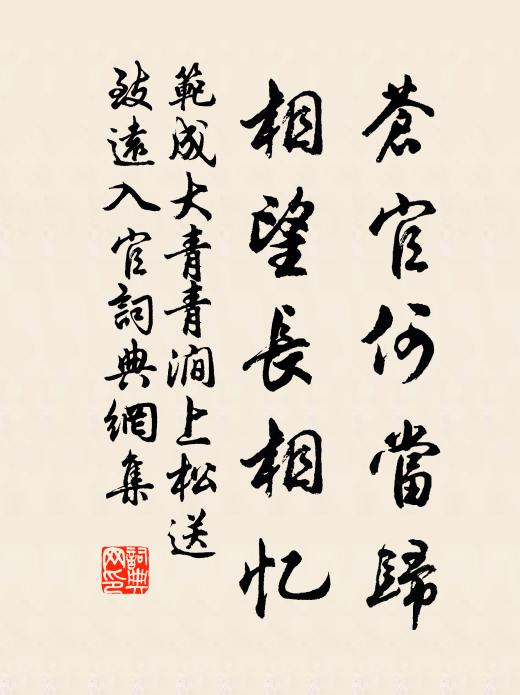 蒼官何當歸
相望長相忆
範成大青青澗上松送
致遠入官詞典網集
詞典網印